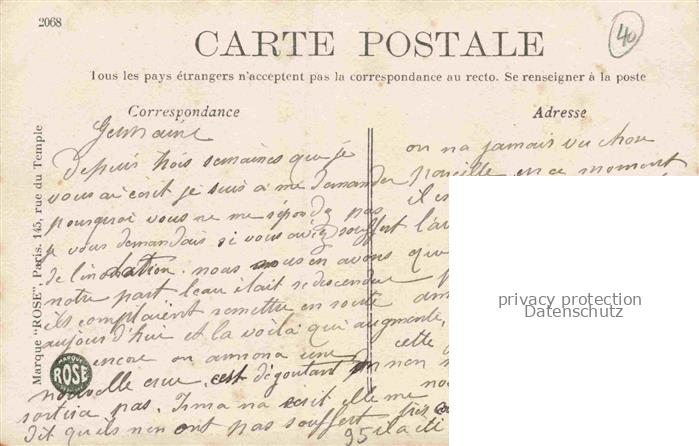 2068
40
CARTE POSTALE
Tous les pays étrangers n'acceptent pas la correspondance au recto. Se renseigner à la poste
Correspondance
Germaine
depuis trois semaines que je
vous ai écrit je suis a me demander
pourquoi vous ne me répondez pas
je vous demandais si vous aviez souffert
de l'inondation. nous nous en avons
notre part l'eau était redescendue
ils comptaient remettre en route
aujourd'hui et la voilà qui augmente,
encore on annona une
nouvelle crue, c'est dégoutant on
sortira pas. Irma na ecrit elle me
dit quils non ont pas souffert
Adresse
on na jamais vu chose
pareille en ce moment
il
l'au
que
am
cette
non
no
95 il a été
Marque "ROSE", Paris. 145, rue du Temple
MARQUE
ROSE
privacy protection
Datenschutz